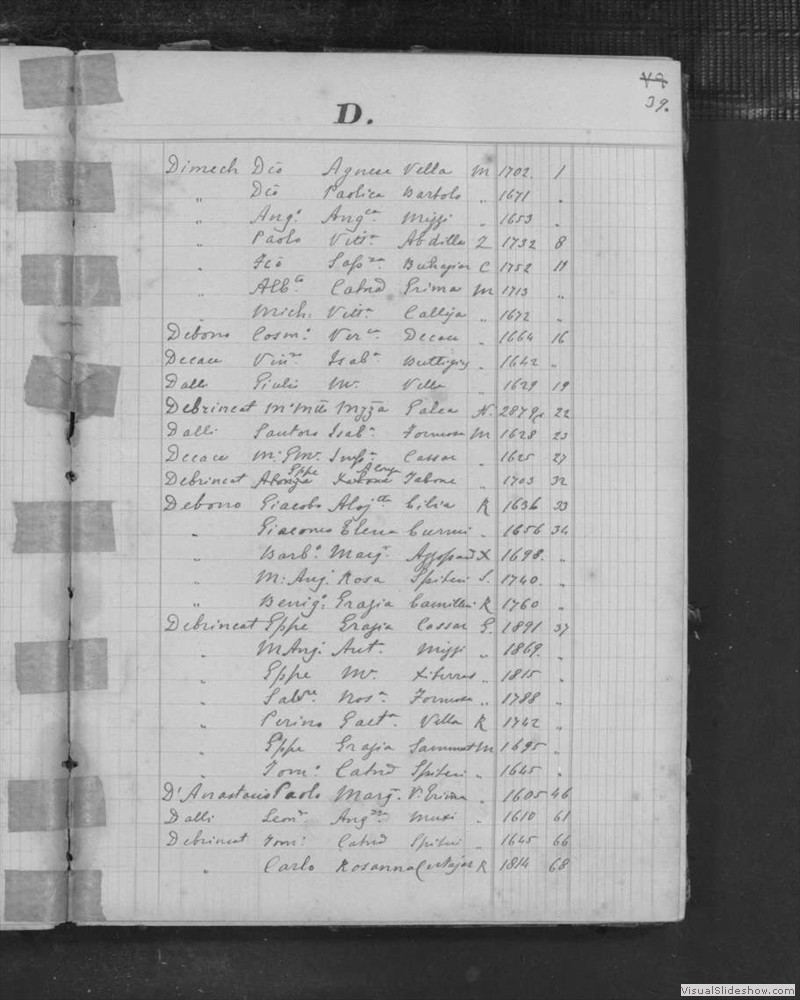 49.
39.
D.
Dimech Dco Agnese Vella M 1702. 1
" Dco Paolica Bartolo " 1671 "
" Ang.o Ang.ca Mizzi " 1653 "
" Paolo Vitt.a Abdilla Z 1732 8
" Buhagiar C 1752 11
" Alb.to Catnd Grima M 1713 "
" Mich: Vitt.a Calleja " 1672 "
Debono Cosm.o Ver.ca Decau " 1664 16
Decau Vin.o Isab.a Buttigieg " 1642 "
Dalli Giulio M.a Vella " 1629 19
Debrincat Galea N. 22
Dalli Santoro Isab.a Formosa M 1628 23
Decau Cassar " 1625 27
Debrincat Alonza Gppe Alonza Tabone " 1703 32
Debono Giacobo Cilia R 1636 33
" Giacomo Elena Curmi " 1656 34
" Barb.o Marg.a X 1698. "
" M: Ang: Rosa Spiteri S. 1740. "
" Benig: Grazia Camilleri R 1760 "
Debrincat Gppe Grazia Cassar G. 1891 37
" M Ang: Ant.a Mizzi " 1869. "
" Gppe M.a Xiberras " 1815 "
" Salv.re Ros.a Formosa " 1788 "
" Perino Gaet.a Vella R 1742 "
" Gppe Grazia Sammut M 1695 "
" Tom.o Catnd Spiteri " 1645 "
D'Anastasio Paolo Marg.a " 1605 46
Dalli Leon.o Ang.ca " 1610 61
Debrincat Tom: Catnd Spiteri " 1645 66
" Carlo Rosanna Certajar R 1814 68
VisualSlideshow.com